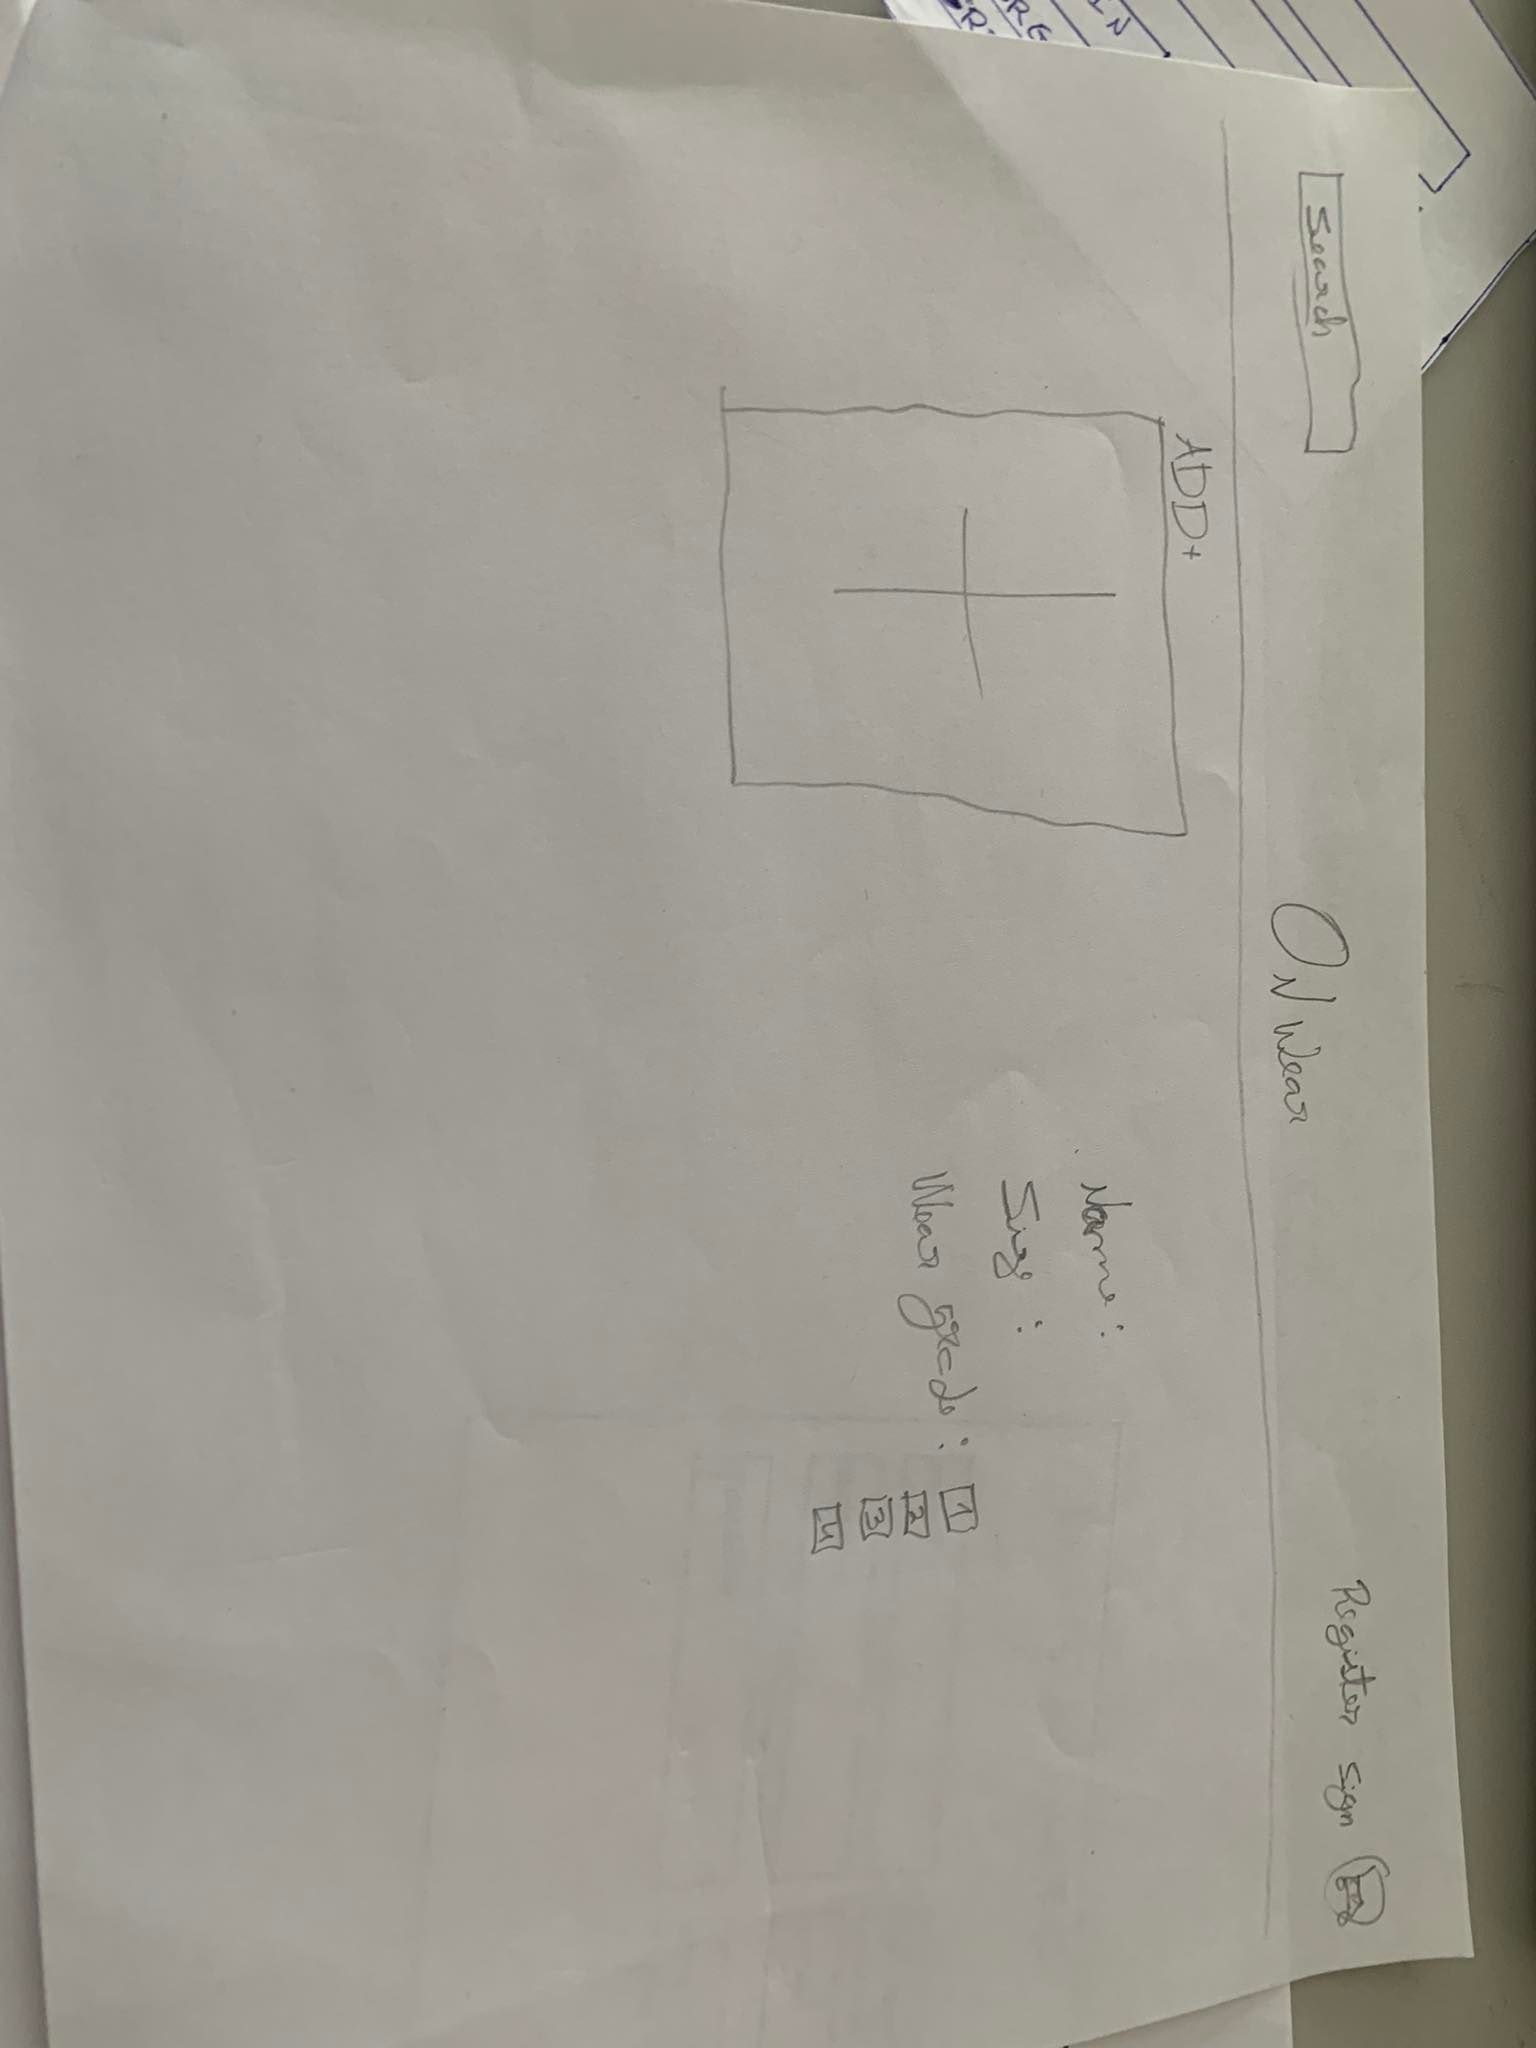 Search
ON Wear
Register sign
ADD+
Name:
Size:
Wear grade: 1
2
3
4
IN